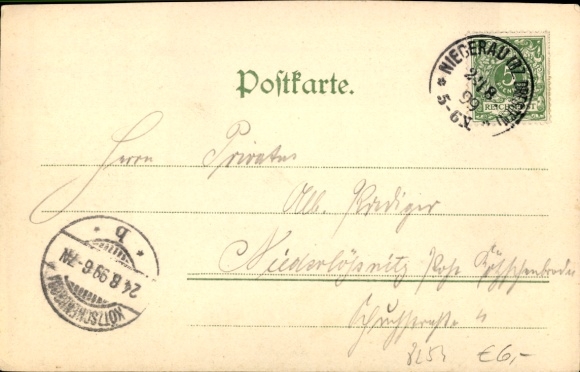 Postkarte.
NIEDERAU (BZ. DRESDEN)
8
99
5-6N.
5
REICHSPOST
Herrn Privatus
Alb. Rüdiger
Niederlössnitz Kötzschenbroda
KÖTZSCHENBRODA
24.8.99.6-7N.
* b *
8254 €6,-